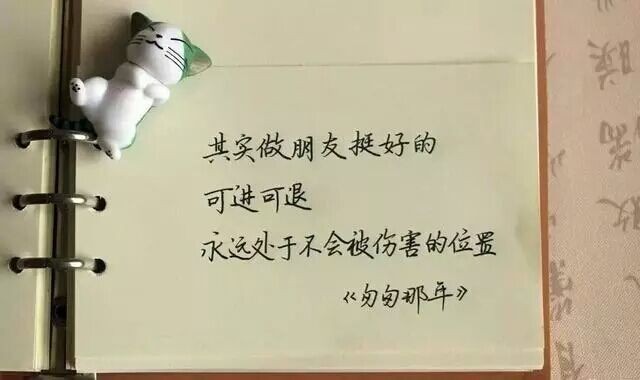 其实做朋友挺好的
可进可退
永远处于不会被伤害的位置
《匆匆那年》